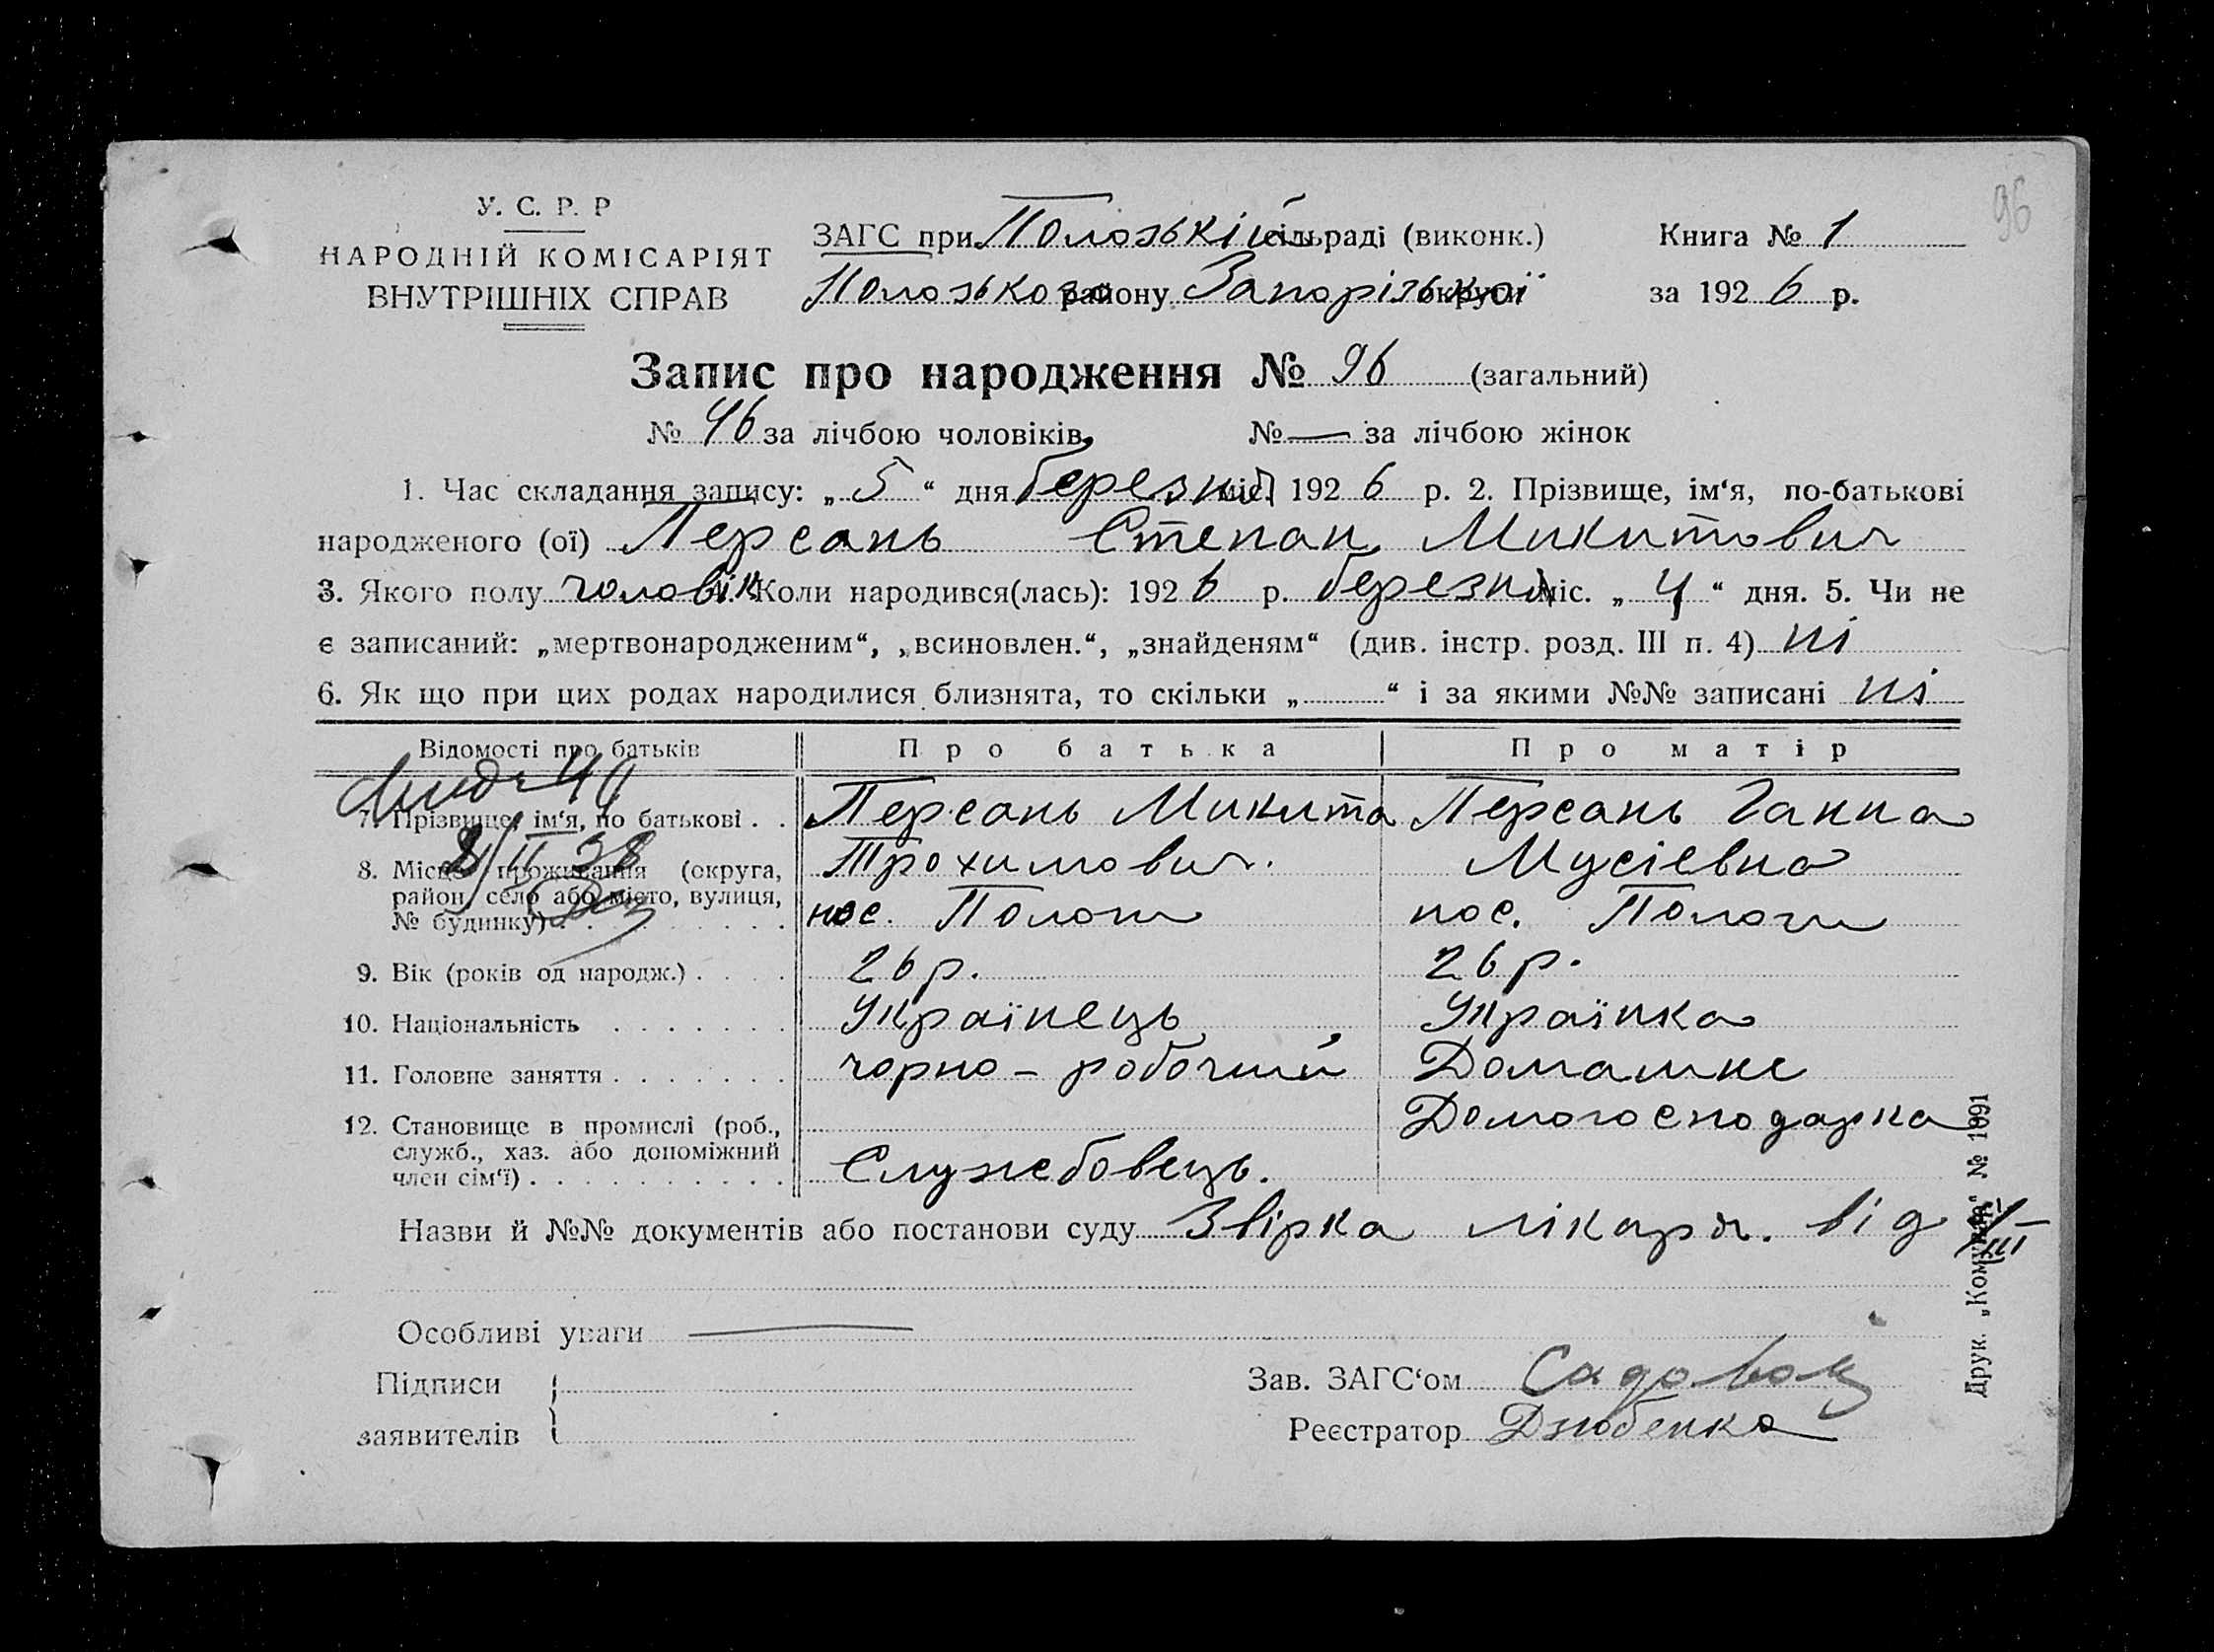 96
У. С. Р. Р
НАРОДНІЙ КОМІСАРІЯТ
ВНУТРІШНІХ СПРАВ
ЗАГС при Пологській сільраді (виконк.)
Книга № 1
Пологського району Запорізької округи
за 1926 р.
Запис про народження № 96 (загальний)
№ 46 за лічбою чоловіків,
№ — за лічбою жінок
1. Час складання запису: „ 5 “ дня березня міс. 1926 р. 2. Прізвище, ім‘я, по-батькові
народженого (ої) Персань Степан Микитович
3. Якого полу чоловік 4. Коли народився(лась): 1926 р. березня міс. „ 4 “ дня. 5. Чи не
є записаний: „мертвонародженим“, „всиновлен.“, „знайденям“ (див. інстр. розд. III п. 4) ні
6. Як що при цих родах народилися близнята, то скільки „ “ і за якими №№ записані ні
Відомості про батьків
Про батька
Про матір
7. Прізвище, ім‘я, по батькові . .
Персань Микита
Трохимович.
Персань Ганна
Мусіевна
8. Місце проживання (округа,
район, село або місто, вулиця,
№ будинку) . . . . . . . . . .
пос. Пологи
пос. Пологи
8/II 38
9. Вік (років од народж.) . . . .
26 р.
26 р.
10. Національність . . . . . . .
Українець
Українка
11. Головне заняття . . . . . . .
чорно-робочий
Домашнє
12. Становище в промислі (роб.,
служб., хаз. або допоміжний
член сім‘ї) . . . . . . . . . .
Служебовець.
Домогосподарка
Назви й №№ документів або постанови суду Звірка лікаря. від
Особливі уваги —
Підписи
заявителів
Зав. ЗАГС‘ом Садовой
Реєстратор Дзюбенко
Друк. „Комунар“ № 1991